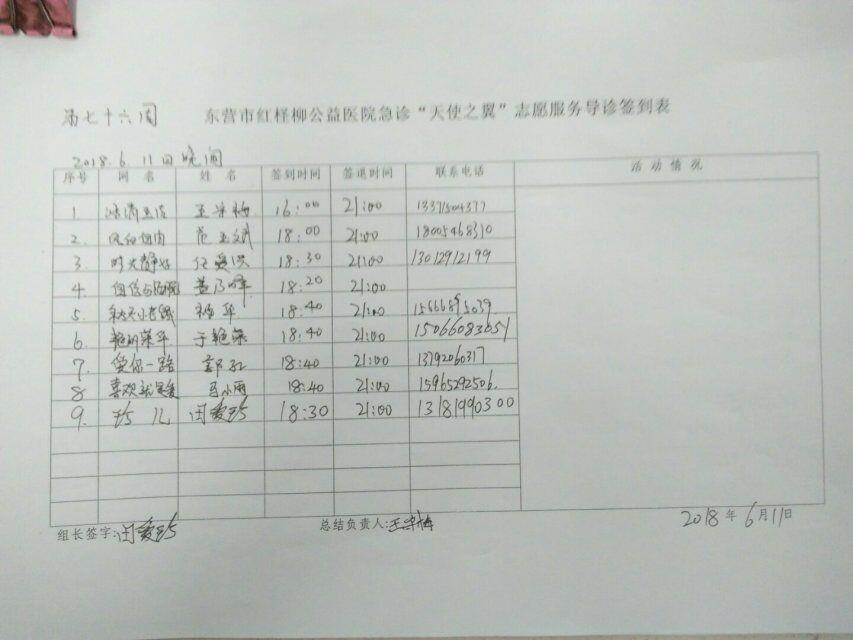 第七十六周 东营市红柽柳公益医院急诊“天使之翼”志愿服务导诊签到表
2018.6.11日晚间
序号 网名 姓名 签到时间 签退时间 联系电话 活动情况
1. 16:00 21:00 13371504377
2. 18:00 21:00 18005468310
3. 18:30 21:00 13012912199
4. 18:20 21:00
5. 18:40 21:00 15666895039
6. 于艳荣 18:40 21:00 15066083651
7. 爱你一路 郭红 18:40 21:00 13792060317
8 喜欢就是爱 马小雨 18:40 21:00 15965292506.
9. 珍儿 闵爱珍 18:30 21:00 13181990300
组长签字:闵爱珍 总结负责人: 2018年6月11日